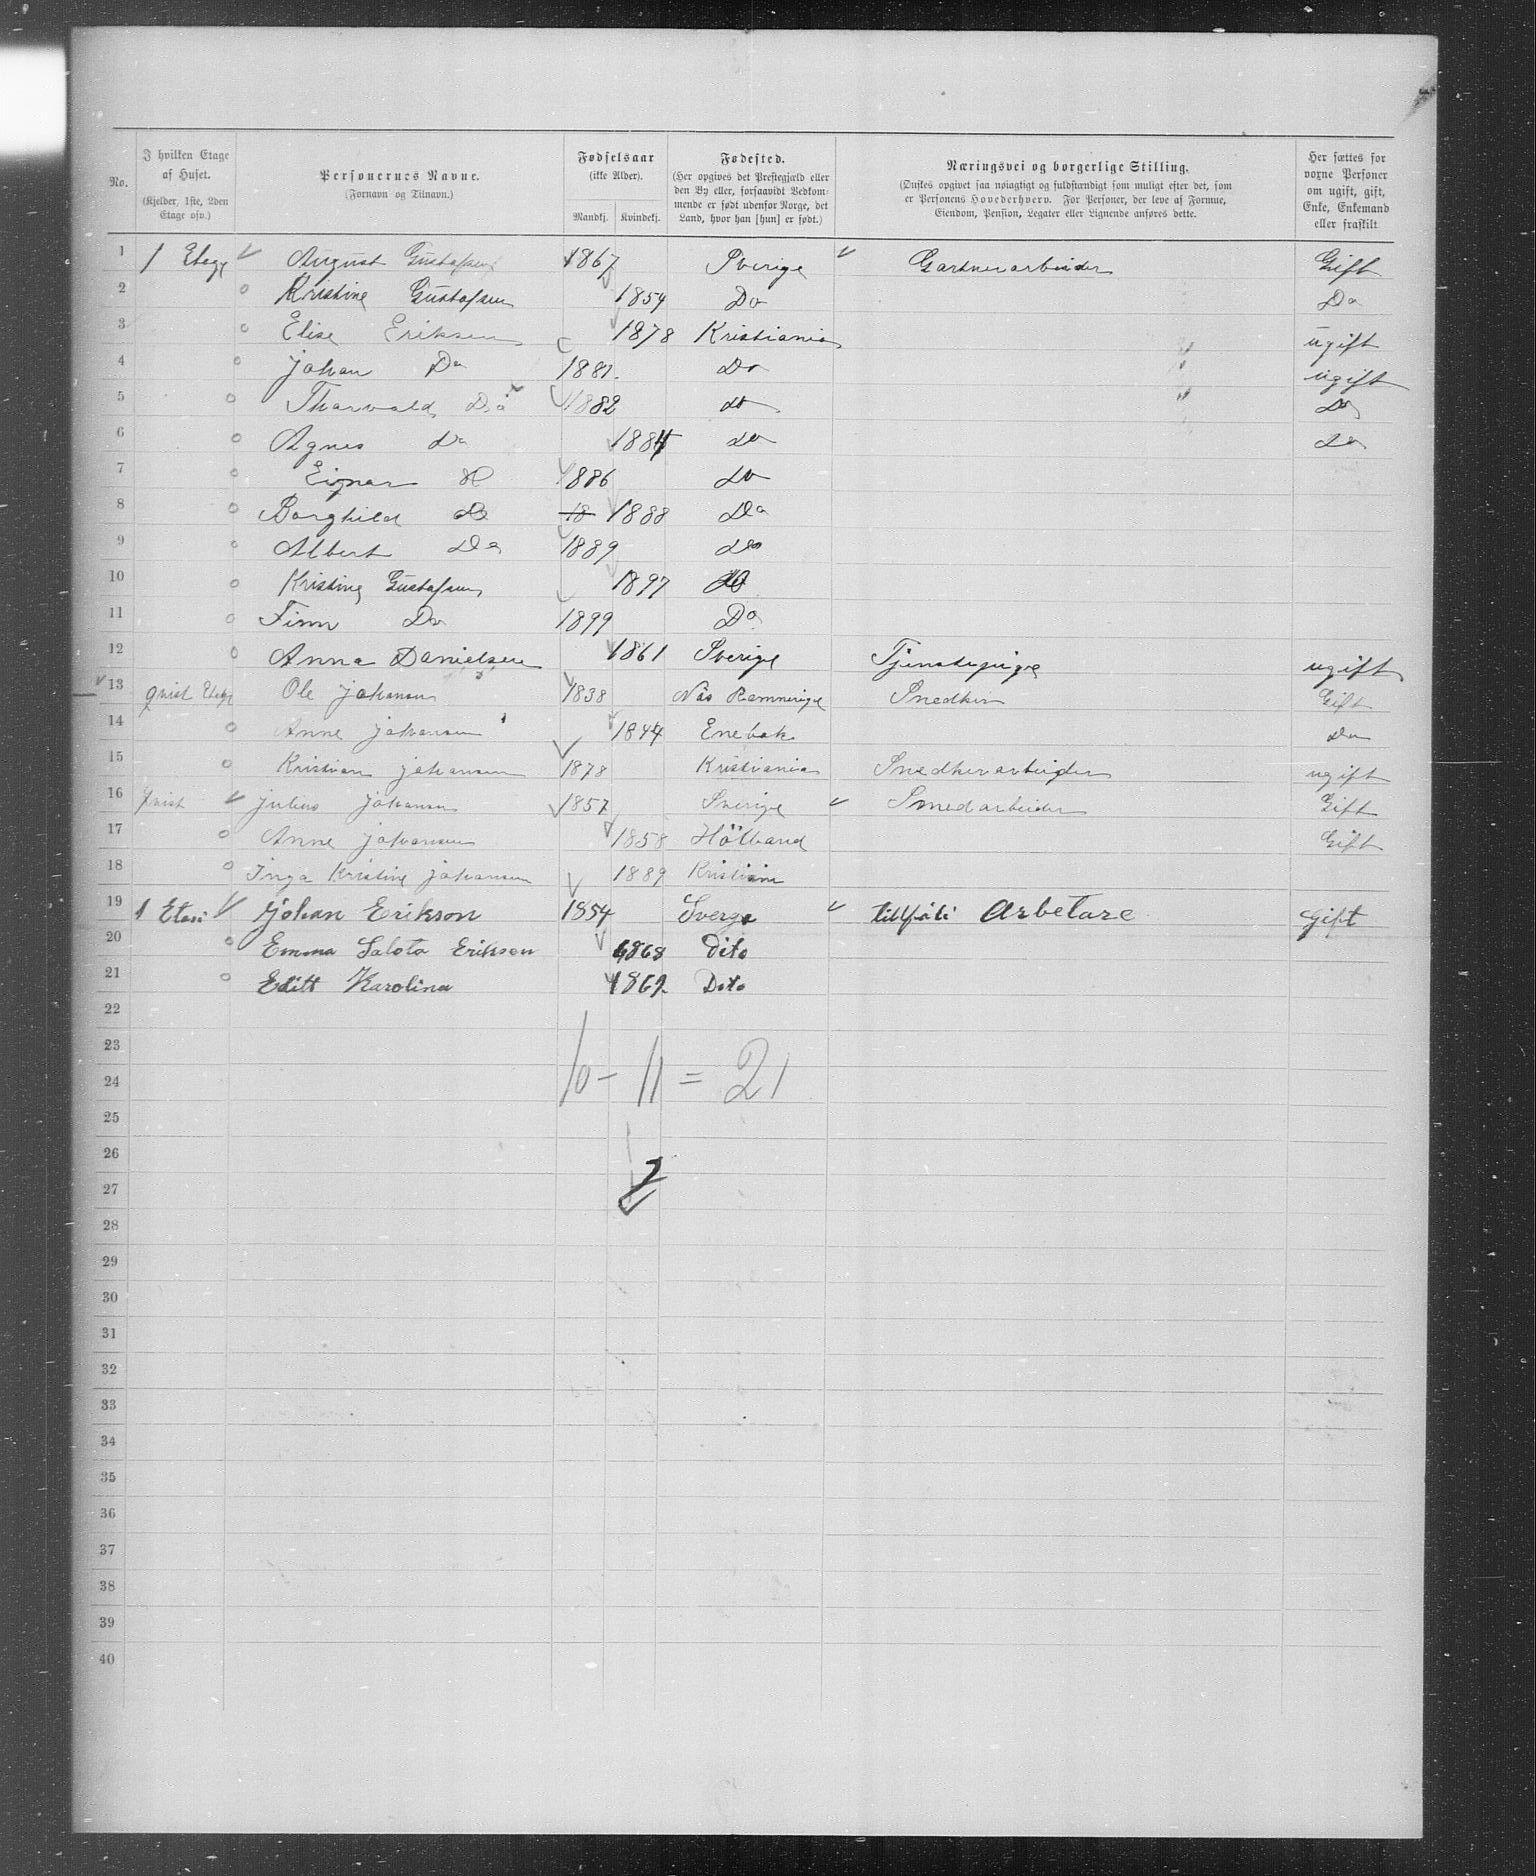 No.
I hvilken Etage af Huset. (Kjelder, 1ste, 2den Etage osv.)
Personernes Navne. (Fornavn og Tilnavn.)
Fødselsaar (ikke Alder).
Mandkj. Kvindekj.
Fødested. (Her opgives det Prestegjæld eller den By eller, forsaavidt Vedkommende er født udenfor Norge, det Land, hvor han [hun] er født.)
Næringsvei og borgerlige Stilling. (Ønskes opgivet saa nøiagtigt og fuldstændigt som muligt efter det, som er Personens Hovederhverv. For Personer, der leve af Formue, Eiendom, Pension, Legater eller Lignende anføres dette.
Her sættes for voxne Personer om ugift, gift, Enke, Enkemand eller fraskilt
1 1 Etage August Gustafsen 1867 Sverige Gartnerarbeider Gift
2 Kristine Gustafsen 1854 Do Do
3 Elise Eriksen 1878 Kristiania ugift
4 Johan Do 1881. Do ugift
5 Tharvald Do 1882 do do
6 Agnes do 1884 do do
7 Eignar do 1886 do
8 Borghild do 18 1888 Do
9 Albert Do 1889 do
10 Kristine Gustafsen 1897 do
11 Finn Do 1899 Do
12 Anna Danielsen 1861 Sverige Tjenstepige ugift
13 qvist Etage Ole Johansen 1838 Näs Romerige Snedker Gift
14 Anne Johansen 1844 Enebak do
15 Kristian Johansen 1878 Kristiania Snedkerarbeider ugift
16 Qvist Julius Johansen 1857 Sverige Smedarbeider Gift
17 Anne Johansen 1858 Höland Gift
18 Inga Kristine Johansen 1889 Kristiania
19 1 Johan Erikson 1854 Sverge Arbetare Gift
20 Emma Erikson 1868 Dito
21 Editt Karolina Dito
22
23
24 10 - 11 = 21
25
26
27
28
29
30
31
32
33
34
35
36
37
38
39
40